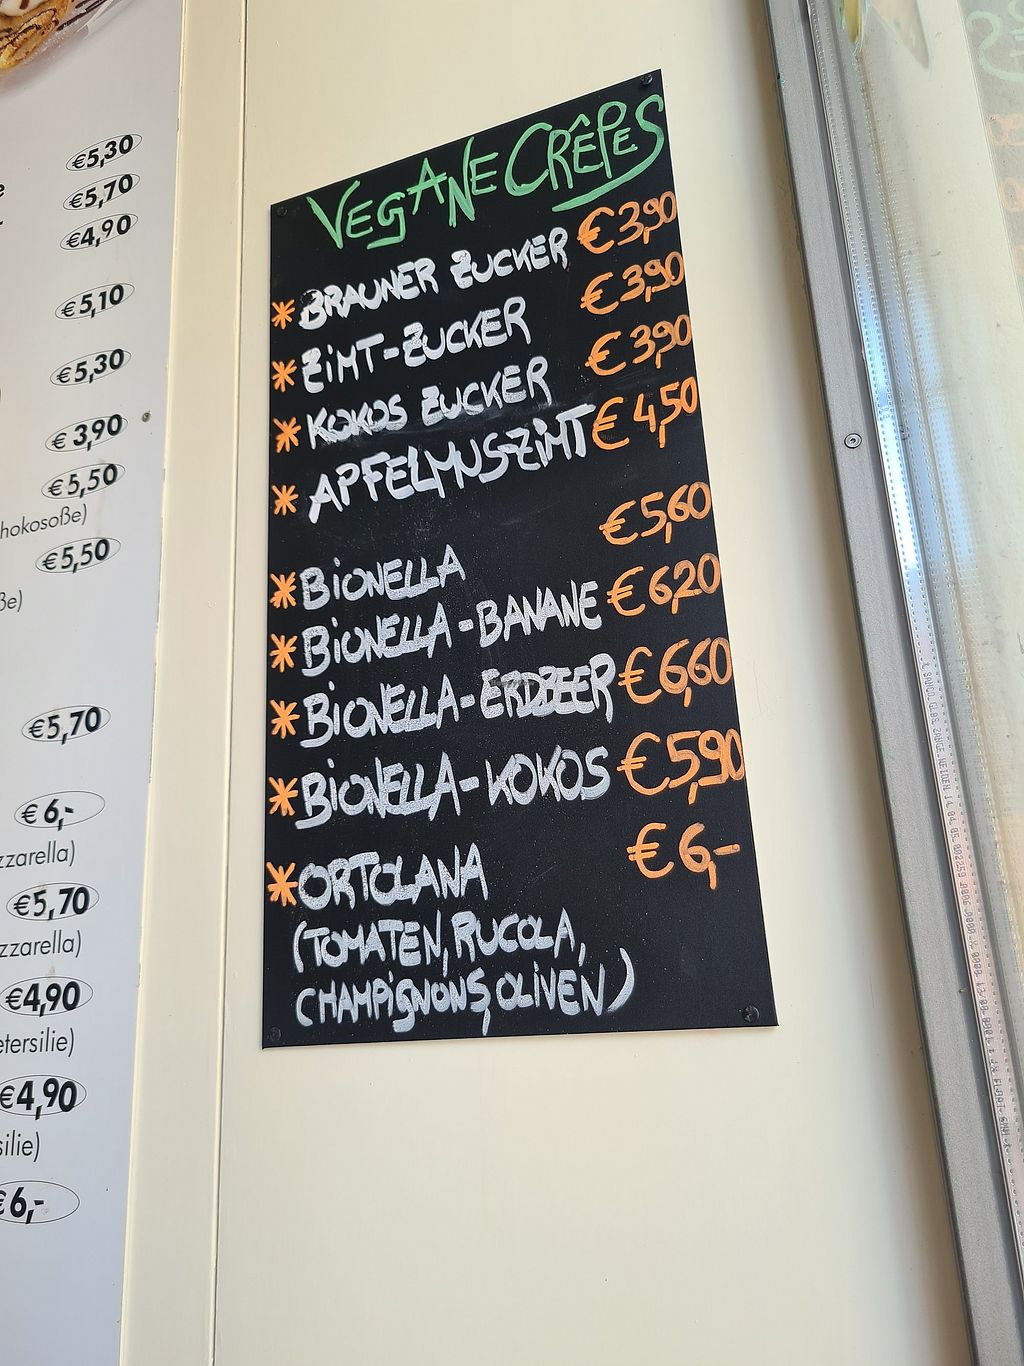 €5,30
€5,70
€4,90
€5,10
€5,30
€3,90
€5,50
hokosoße)
€5,50
ße)
€5,70
€6,-
zzarella)
€5,70
zzarella)
€4,90
etersilie)
€4,90
silie)
€6,-
VEGANE CRÊPES
* BRAUNER ZUCKER €3,90
* ZIMT-ZUCKER €3,90
* KOKOS ZUCKER €3,90
* APFELMUS-ZIMT €4,50
* BIONELLA €5,60
* BIONELLA-BANANE €6,20
* BIONELLA-ERDBEER €6,60
* BIONELLA-KOKOS €5,90
* ORTOLANA €6,-
(TOMATEN, RUCOLA,
CHAMPIGNONS, OLIVEN)